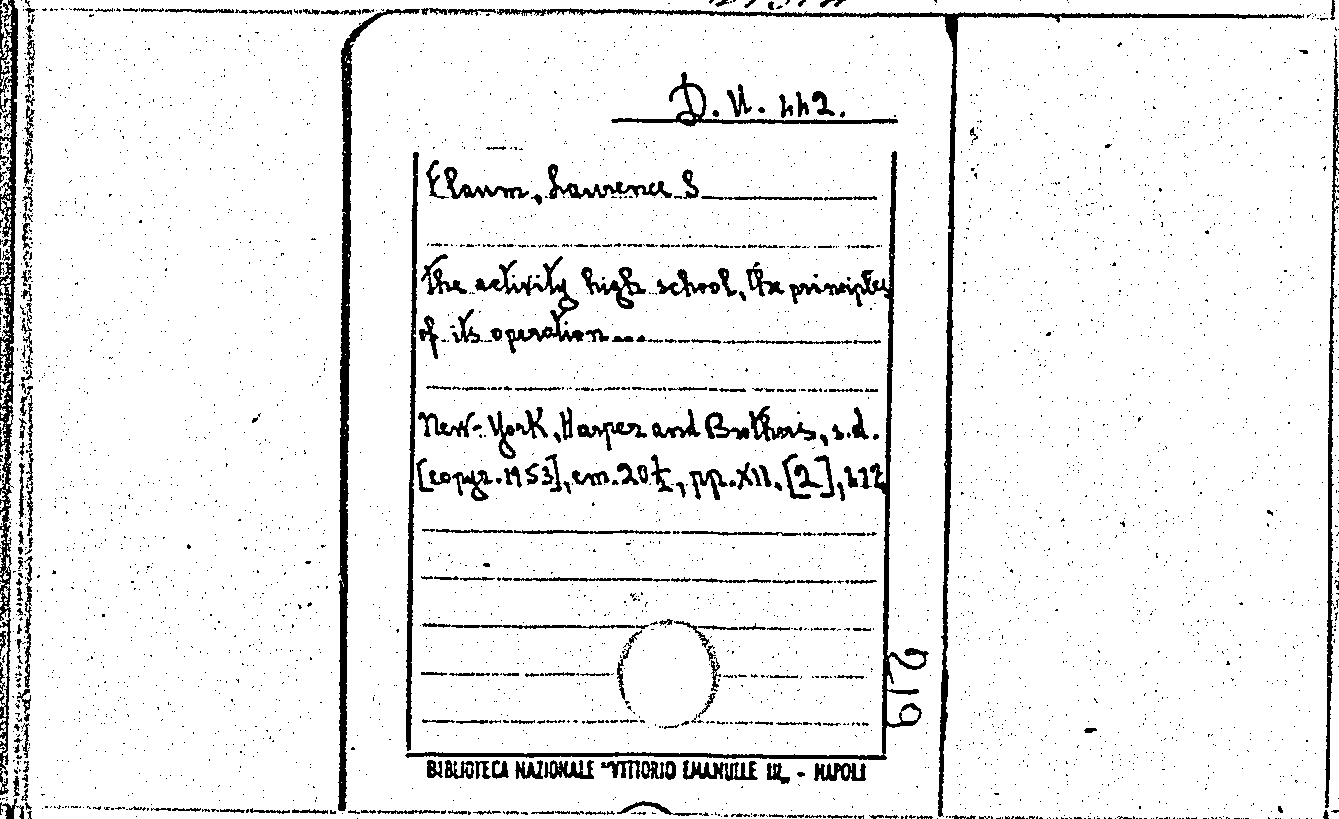 D. U. 442.
Flaum, Laurence S
The activity high school, the principles
of its operation...
New-York, Harper and Brothers, s.d.
[copyr. 1953], cm. 20½, pp. XII, [2], 442
219
BIBLIOTECA NAZIONALE "VITTORIO EMANUELE III„ - NAPOLI